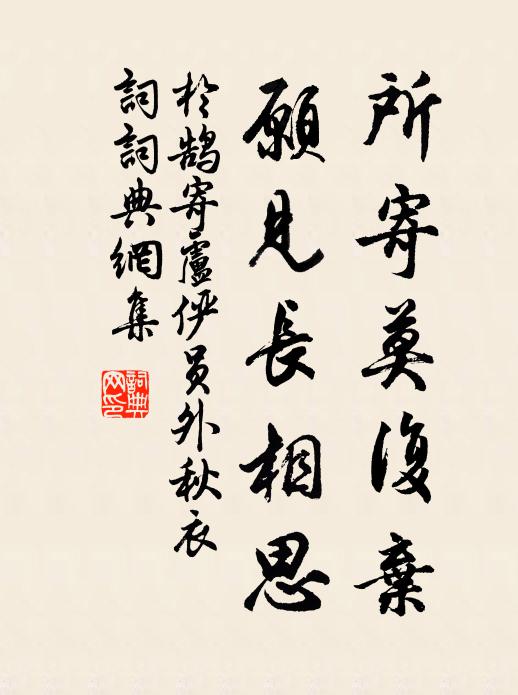 所寄莫復棄
願見長相思
於鵠寄盧俨員外秋衣
詞詞典網集
詞典
网印